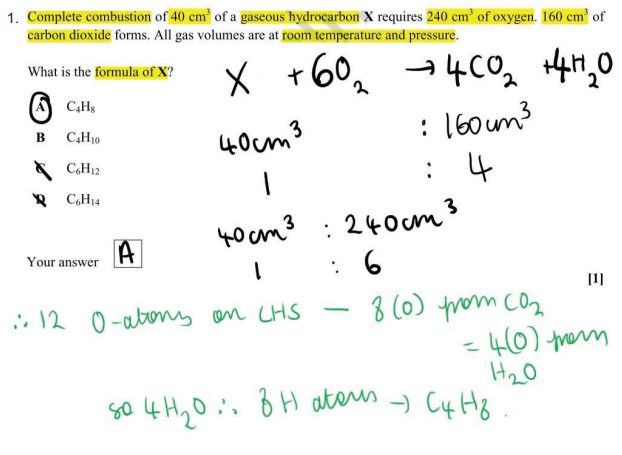 1. Complete combustion of 40 cm³ of a gaseous hydrocarbon X requires 240 cm³ of oxygen. 160 cm³ of
carbon dioxide forms. All gas volumes are at room temperature and pressure.
What is the formula of X?
X + 6O₂ → 4CO₂ + 4H₂O
A C₄H₈
B C₄H₁₀
C C₆H₁₂
D C₆H₁₄
40cm³ : 160cm³
1 : 4
40cm³ : 240cm³
1 : 6
Your answer A
[1]
∴ 12 O-atoms on LHS — 8(O) from CO₂
= 4(O) from
H₂O
so 4H₂O ∴ 8 H atoms → C₄H₈.